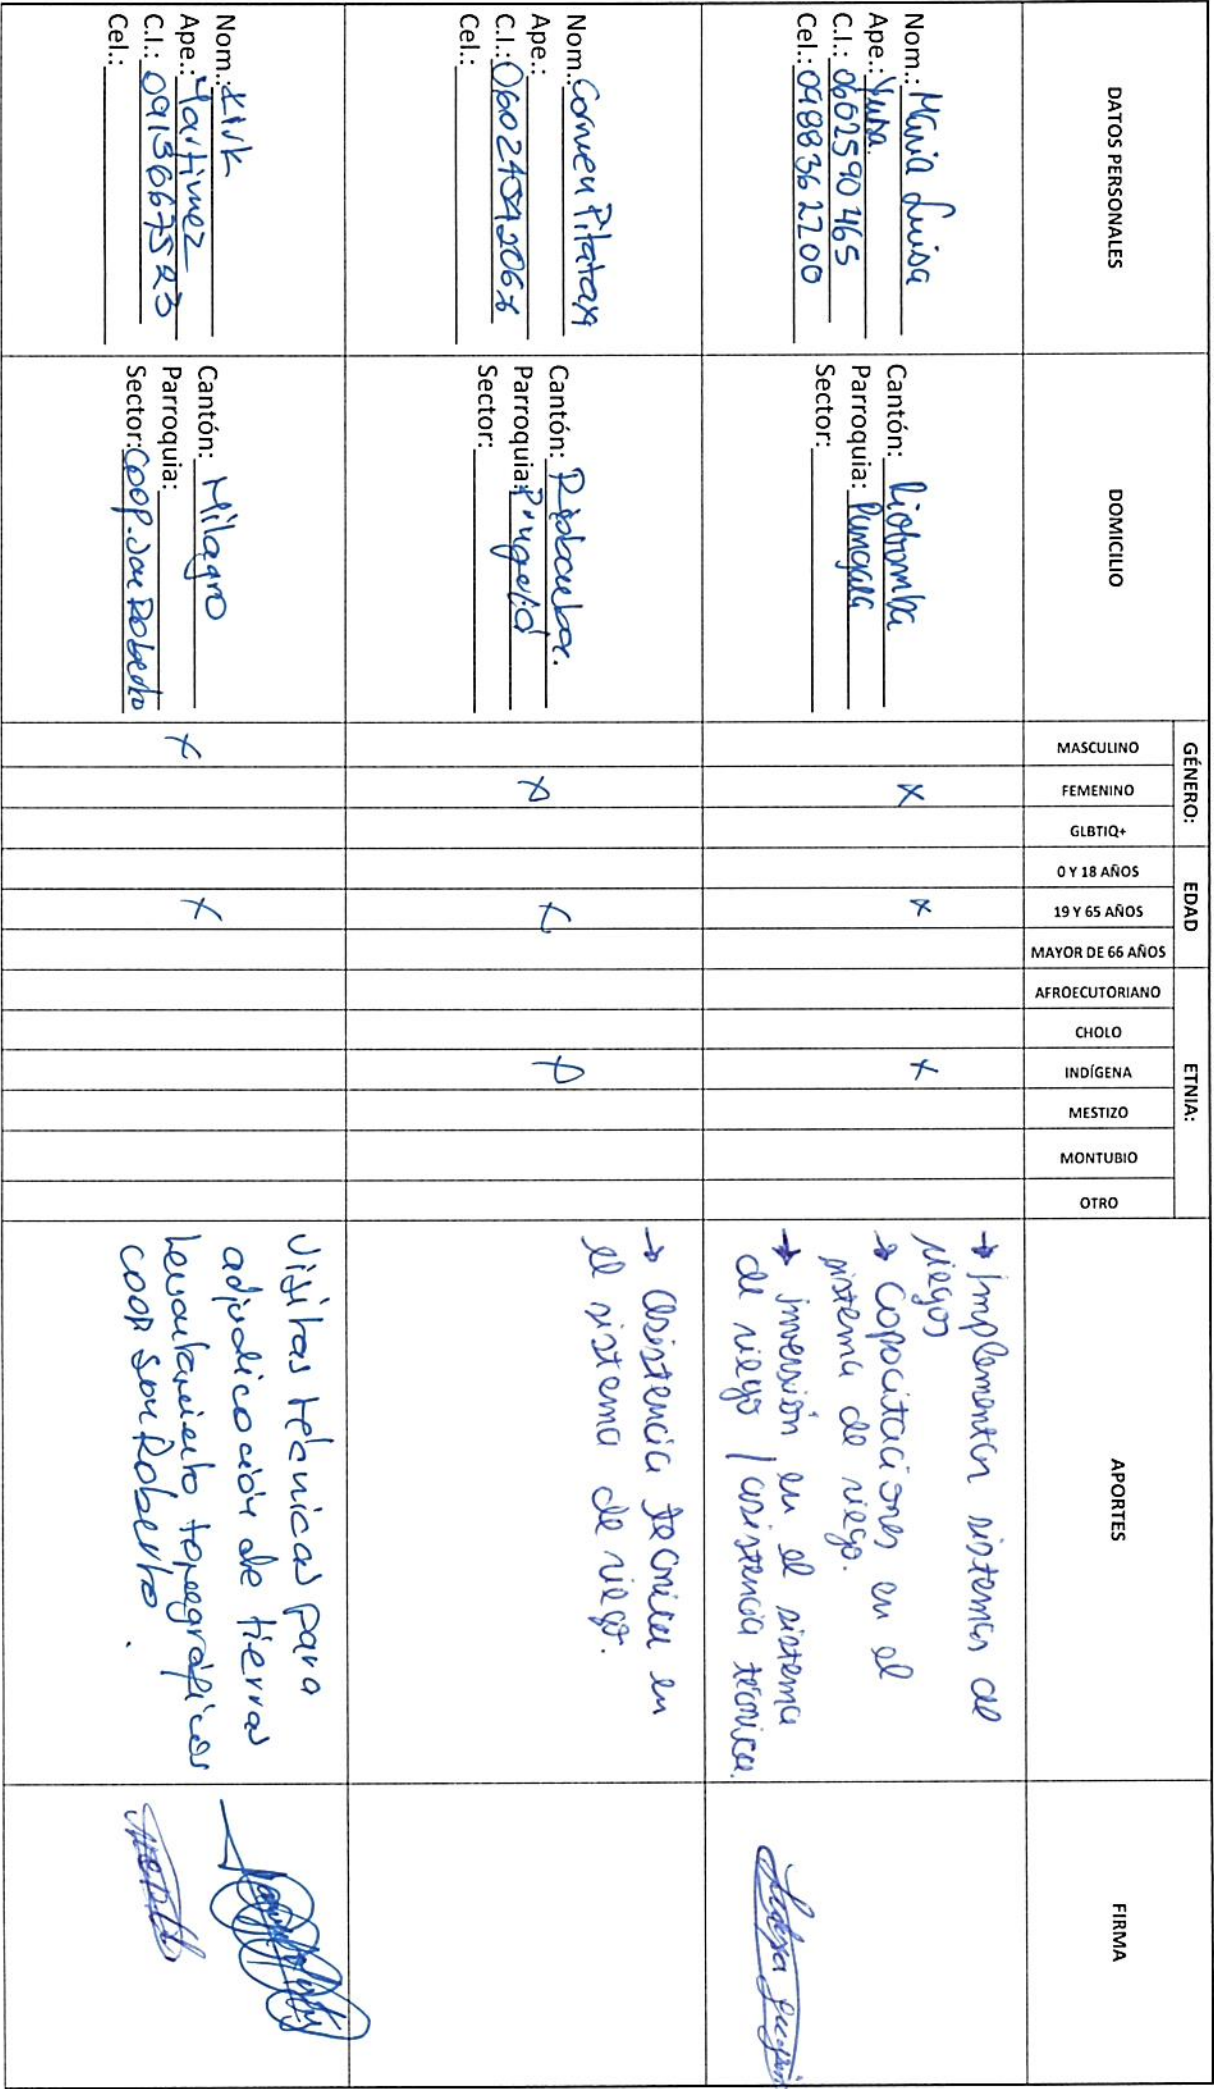 DATOS PERSONALES
DOMICILIO
GÉNERO:
EDAD
ETNIA:
MASCULINO
FEMENINO
GLBTIQ+
0 Y 18 AÑOS
19 Y 65 AÑOS
MAYOR DE 66 AÑOS
AFROECUTORIANO
CHOLO
INDÍGENA
MESTIZO
MONTUBIO
OTRO
APORTES
FIRMA
Nom.: Maria Luisa
Ape.:
C.I.: 0602590465
Cel.: 0988362200
Cantón: Riobamba
Parroquia: Pungala
Sector:
X
X
X
→ Implementar sistemas de
riegos
→ Capacitaciones en el
sistema de riego.
→ inversión en el sistema
de riego / asistencia técnica.
Nom.: Carmen Pilataxi
Ape.:
C.I.:
Cel.:
Cantón: Riobamba.
Parroquia:
Sector:
X
X
X
→ Asistencia técnica en
el sistema de riego.
Nom.: Kirk
Ape.: Martinez
C.I.: 0913667523
Cel.:
Cantón: Milagro
Parroquia:
Sector: Coop. San Roberto
X
X
Visitas técnicas para
adjudicación de tierras
levantamiento topográficos
coop San Roberto.